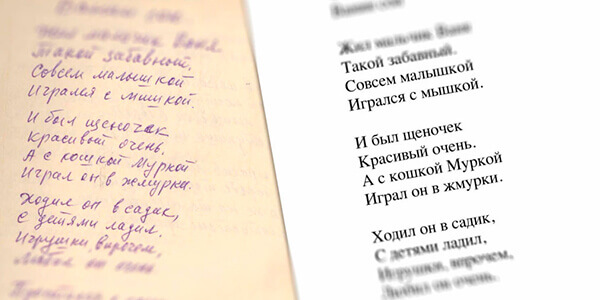 Жил мальчик Ваня
Такой забавный.
Совсем малышкой
Игрался с мишкой.
И был щеночек
Красивый очень.
А с кошкой Муркой
Играл он в жмурки.
Ходил он в садик,
С детями ладил.
Игрушки, впрочем,
Любил он очень.
Жил мальчик Ваня
Такой забавный.
Совсем малышкой
Игрался с мышкой.
И был щеночек
Красивый очень.
А с кошкой Муркой
Играл он в жмурки.
Ходил он в садик,
С детями ладил,
Игрушки, впрочем,
Любил он очень.